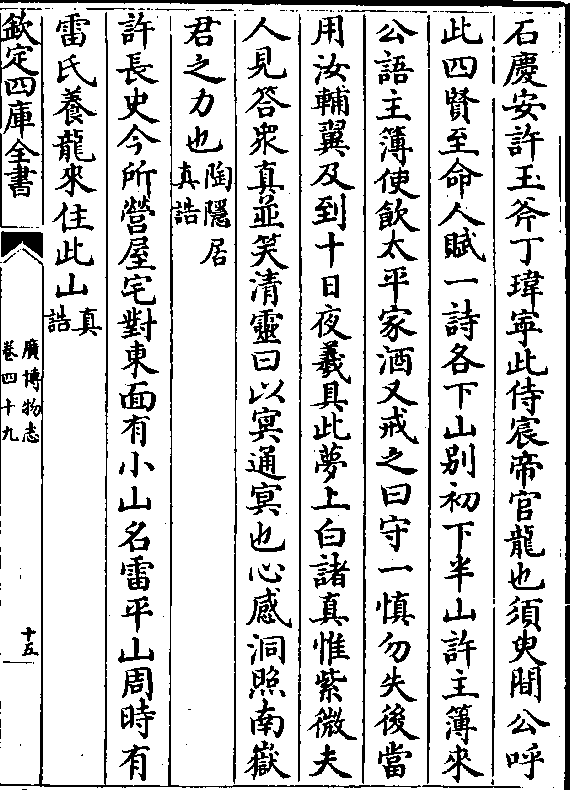 石慶安許玉斧丁瑋寜此侍宸帝官龍也須臾間公呼
此四賢至命人賦一詩各下山别初下半山許主簿來
公語主簿使飲太平家酒又戒之曰守一慎勿失後當
用汝輔翼及到十日夜羲具此夢上白諸真惟紫微夫
人見答衆真並笑清靈曰以㝠通㝠也心感洞照南嶽
君之力也陶隱居真誥
許長史今所營屋宅對東面有小山名雷平山周時有
雷氏養龍來住此山真誥
欽定四庫全書
廣博物志
卷四十九
十五